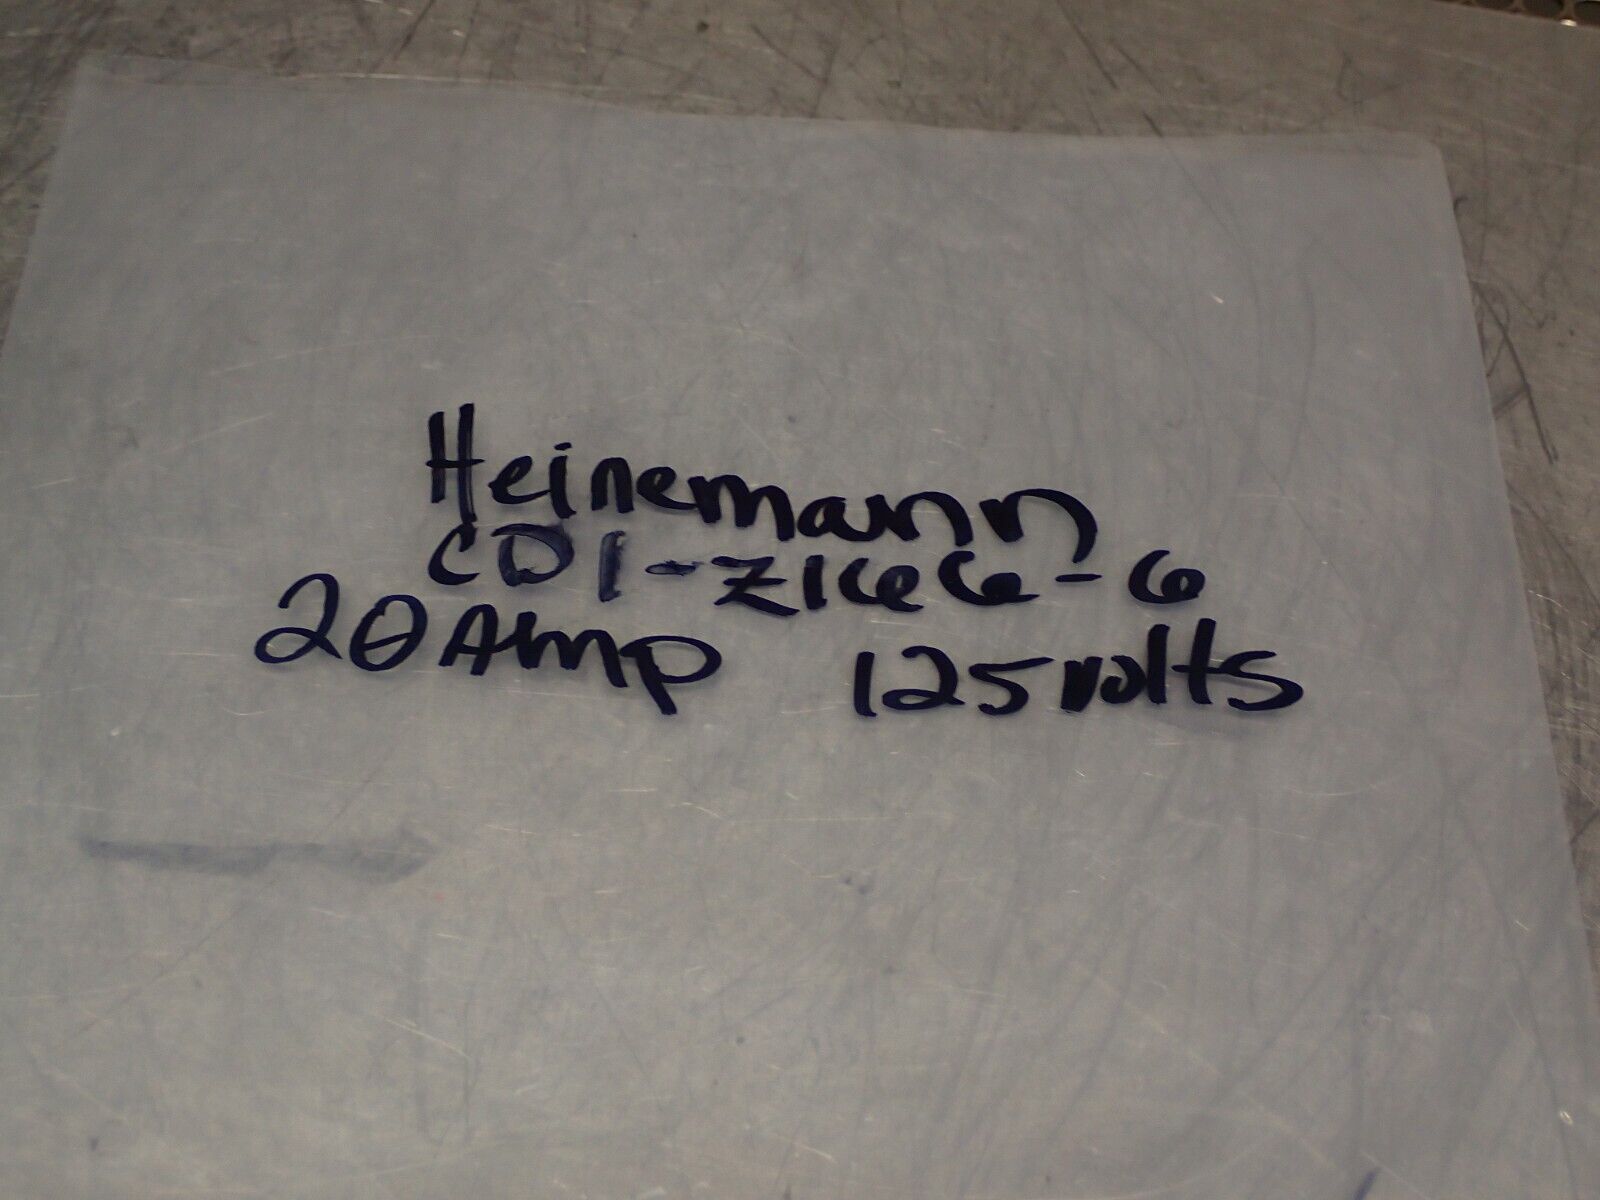 Heinemann
CD1-Z166-6
20Amp 125volts